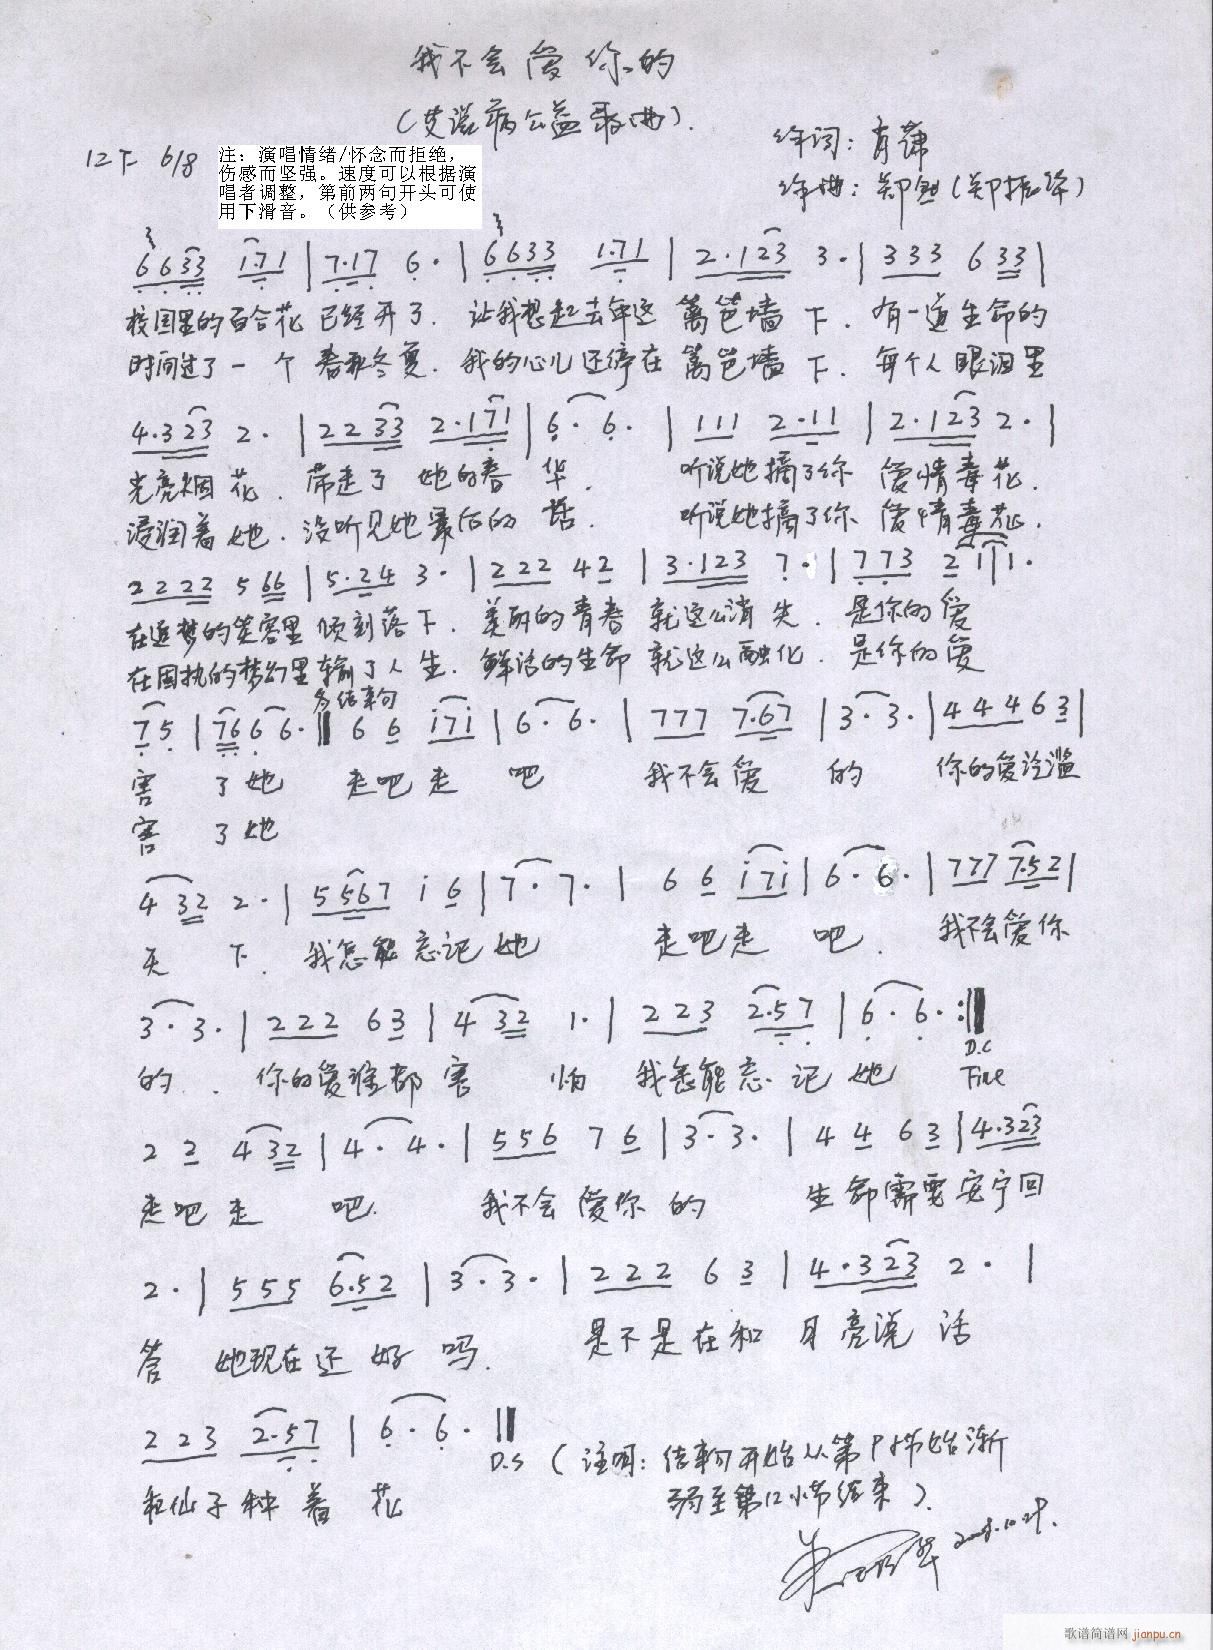 我不会爱你的
(艾滋病公益歌曲).
作词：肖潇
12下 6/8
注：演唱情绪/怀念而拒绝，
伤感而坚强。速度可以根据演
唱者调整，第前两句开头可使
用下滑音。（供参考）
作曲：郑 (郑振华)
6633 1.71 | 7.17 6· | 6633 1.71 | 2·123 3· | 333 633 |
校园里的百合花 已经开了. 让我想起去年这 篱笆墙下. 有一道生命的
时间过了一个 春秋冬夏. 我的心儿还停在 篱笆墙下. 每个人眼泪里
4·323 2· | 2233 2·171 | 6· 6· | 111 2·11 | 2·123 2· |
光亮烟花. 带走了 她的春华. 听说她摘了你 爱情毒花.
浸润着她. 没听见她最后的话. 听说她摘了你 爱情毒花.
2222 566 | 5·24 3· | 222 42 | 3·123 7· | 773 21 | 1·
在追梦的笑容里 顷刻落下. 美丽的青春 就这么消失. 是你的爱
在固执的梦幻里 输了人生. 鲜活的生命 就这么融化. 是你的爱
为结束句
75 | 766 6· || 6 6 i7i | 6· 6· | 777 7.67 | 3· 3· | 44463 |
害 了她 走吧走 吧 我不会爱 的 你的爱泛滥
害 了她
432 2· | 5567 i6 | 7· 7· | 6 6 i7i | 6· 6· | 777 7.52 |
天 下. 我怎能忘记她 走吧走 吧. 我不会爱你
3· 3· | 222 63 | 432 1· | 223 2.57 | 6· 6· :||
D.C
的. 你的爱谁都害 怕 我怎能忘记她 Fine
2 2 432 | 4· 4· | 556 76 | 3· 3· | 44 63 | 4·323
走吧走 吧. 我不会爱你的 生命需要安宁回
2· | 555 6.52 | 3· 3· | 222 63 | 4·323 2· |
答 她现在还好吗. 是不是在和月亮说话
223 2·57 | 6· 6· ||
D.S (注明：结束句开始从第 小节始渐
和仙子种着花
弱至第12小节结束).
歌谱简谱网 jianpu.cn